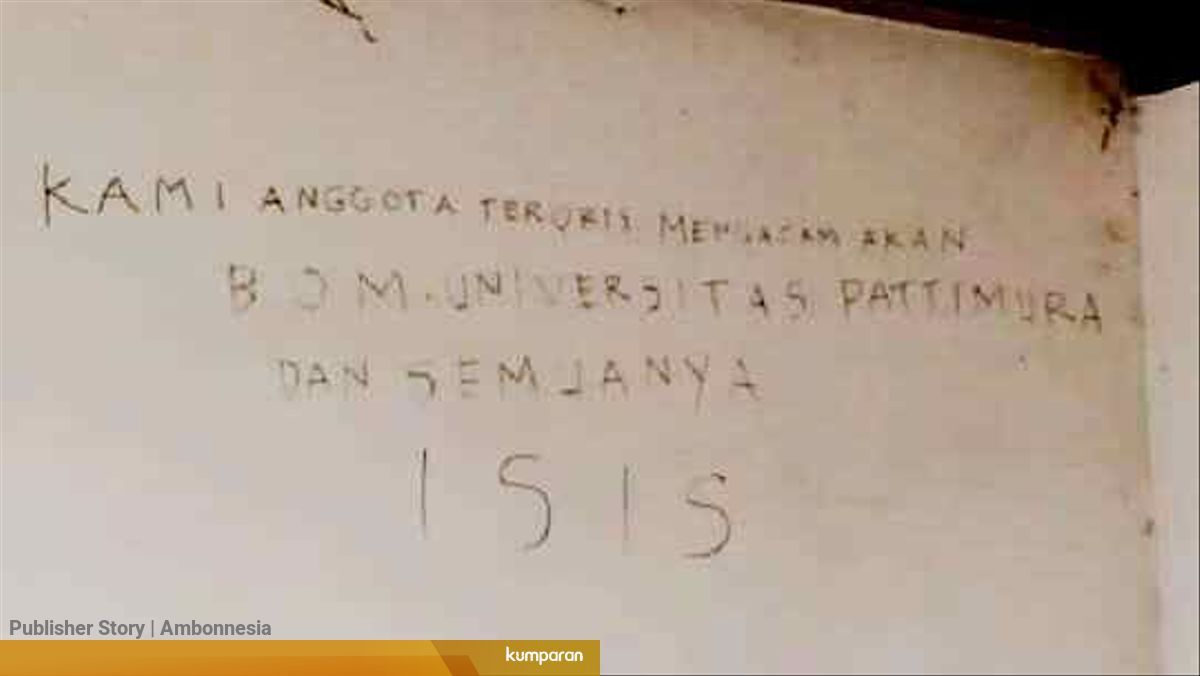 KAMI ANGGOTA TERORIS MENGACAM AKAN
BOM. UNIVERSITAS PATTIMURA
DAN SEMUANYA
ISIS
Publisher Story | Ambonnesia
kumparan